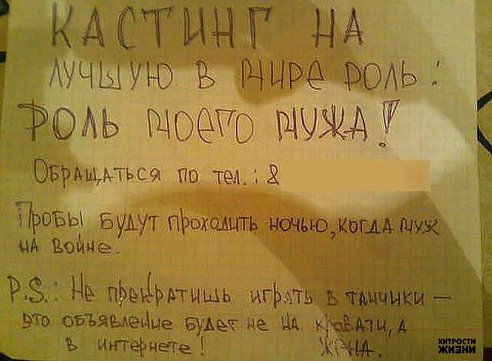 КАСТИНГ НА
ЛУЧШУЮ В МИРЕ РОЛЬ:
РОЛЬ МОЕГО МУЖА!
ОБРАЩАТЬСЯ ПО ТЕЛ.: 8
ПРОБЫ БУДУТ ПРОХОДИТЬ НОЧЬЮ, КОГДА МУЖ
НА ВОЙНЕ.
P.S.: НЕ ПРЕКРАТИШЬ ИГРАТЬ В ТАНЧИКИ —
ЭТО ОБЪЯВЛЕНИЕ БУДЕТ НЕ НА КРОВАТИ, А
В ИНТЕРНЕТЕ! ЖЕНА.
ХИТРОСТИ
ЖИЗНИ